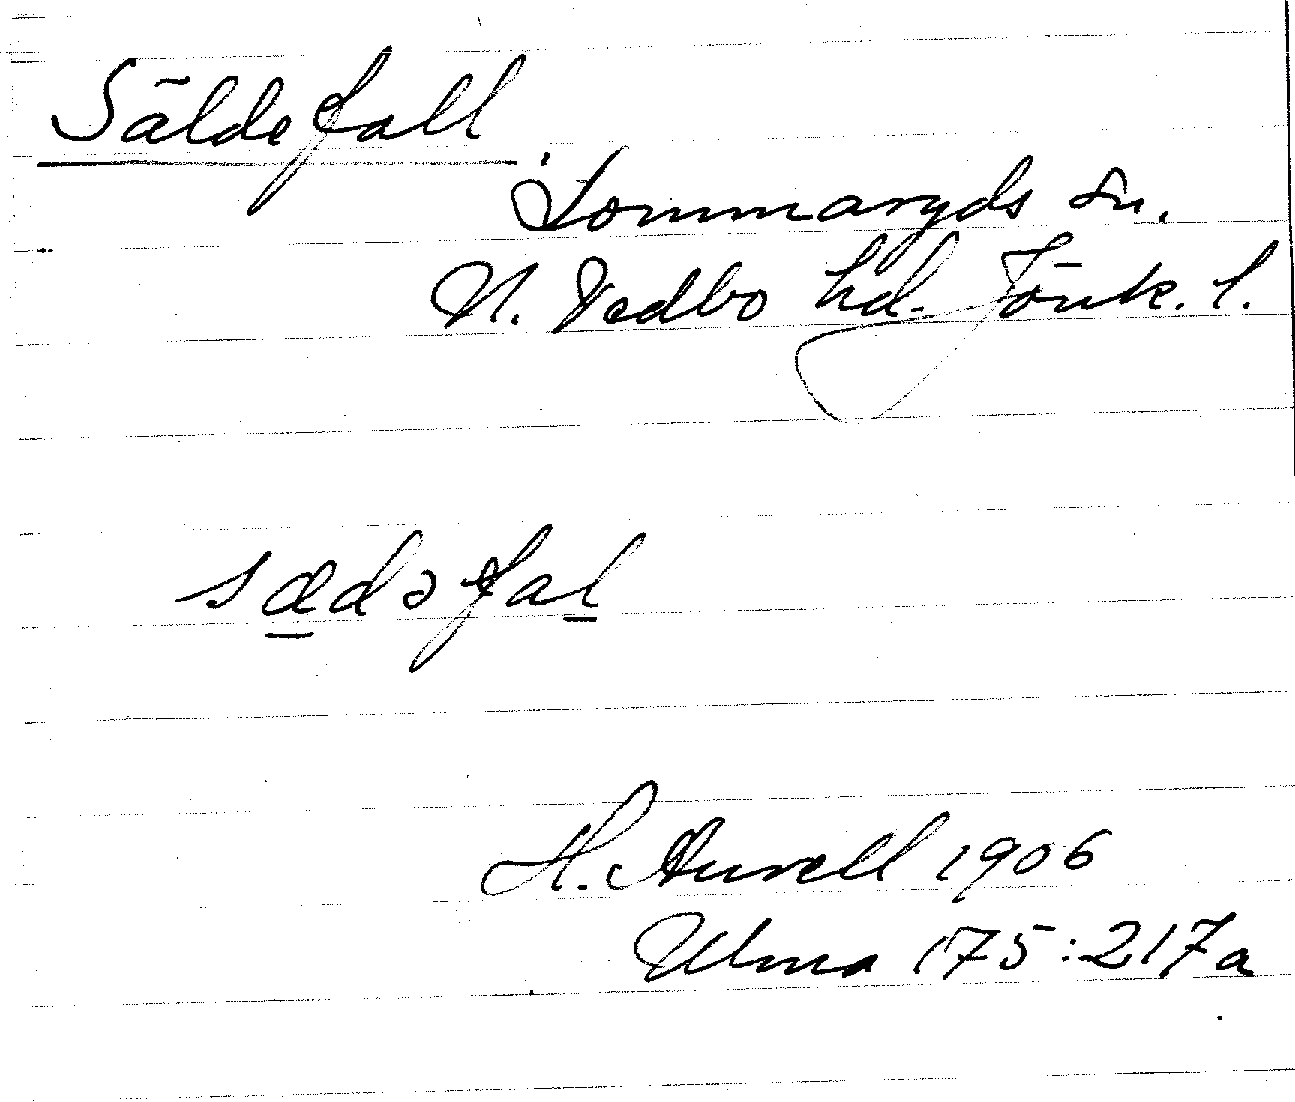 Säldefall
Lommaryds sn.
N. Vedbo hd. Jönk. l.
sædəfal
H. Aurell 1906
Ulma 175:217a